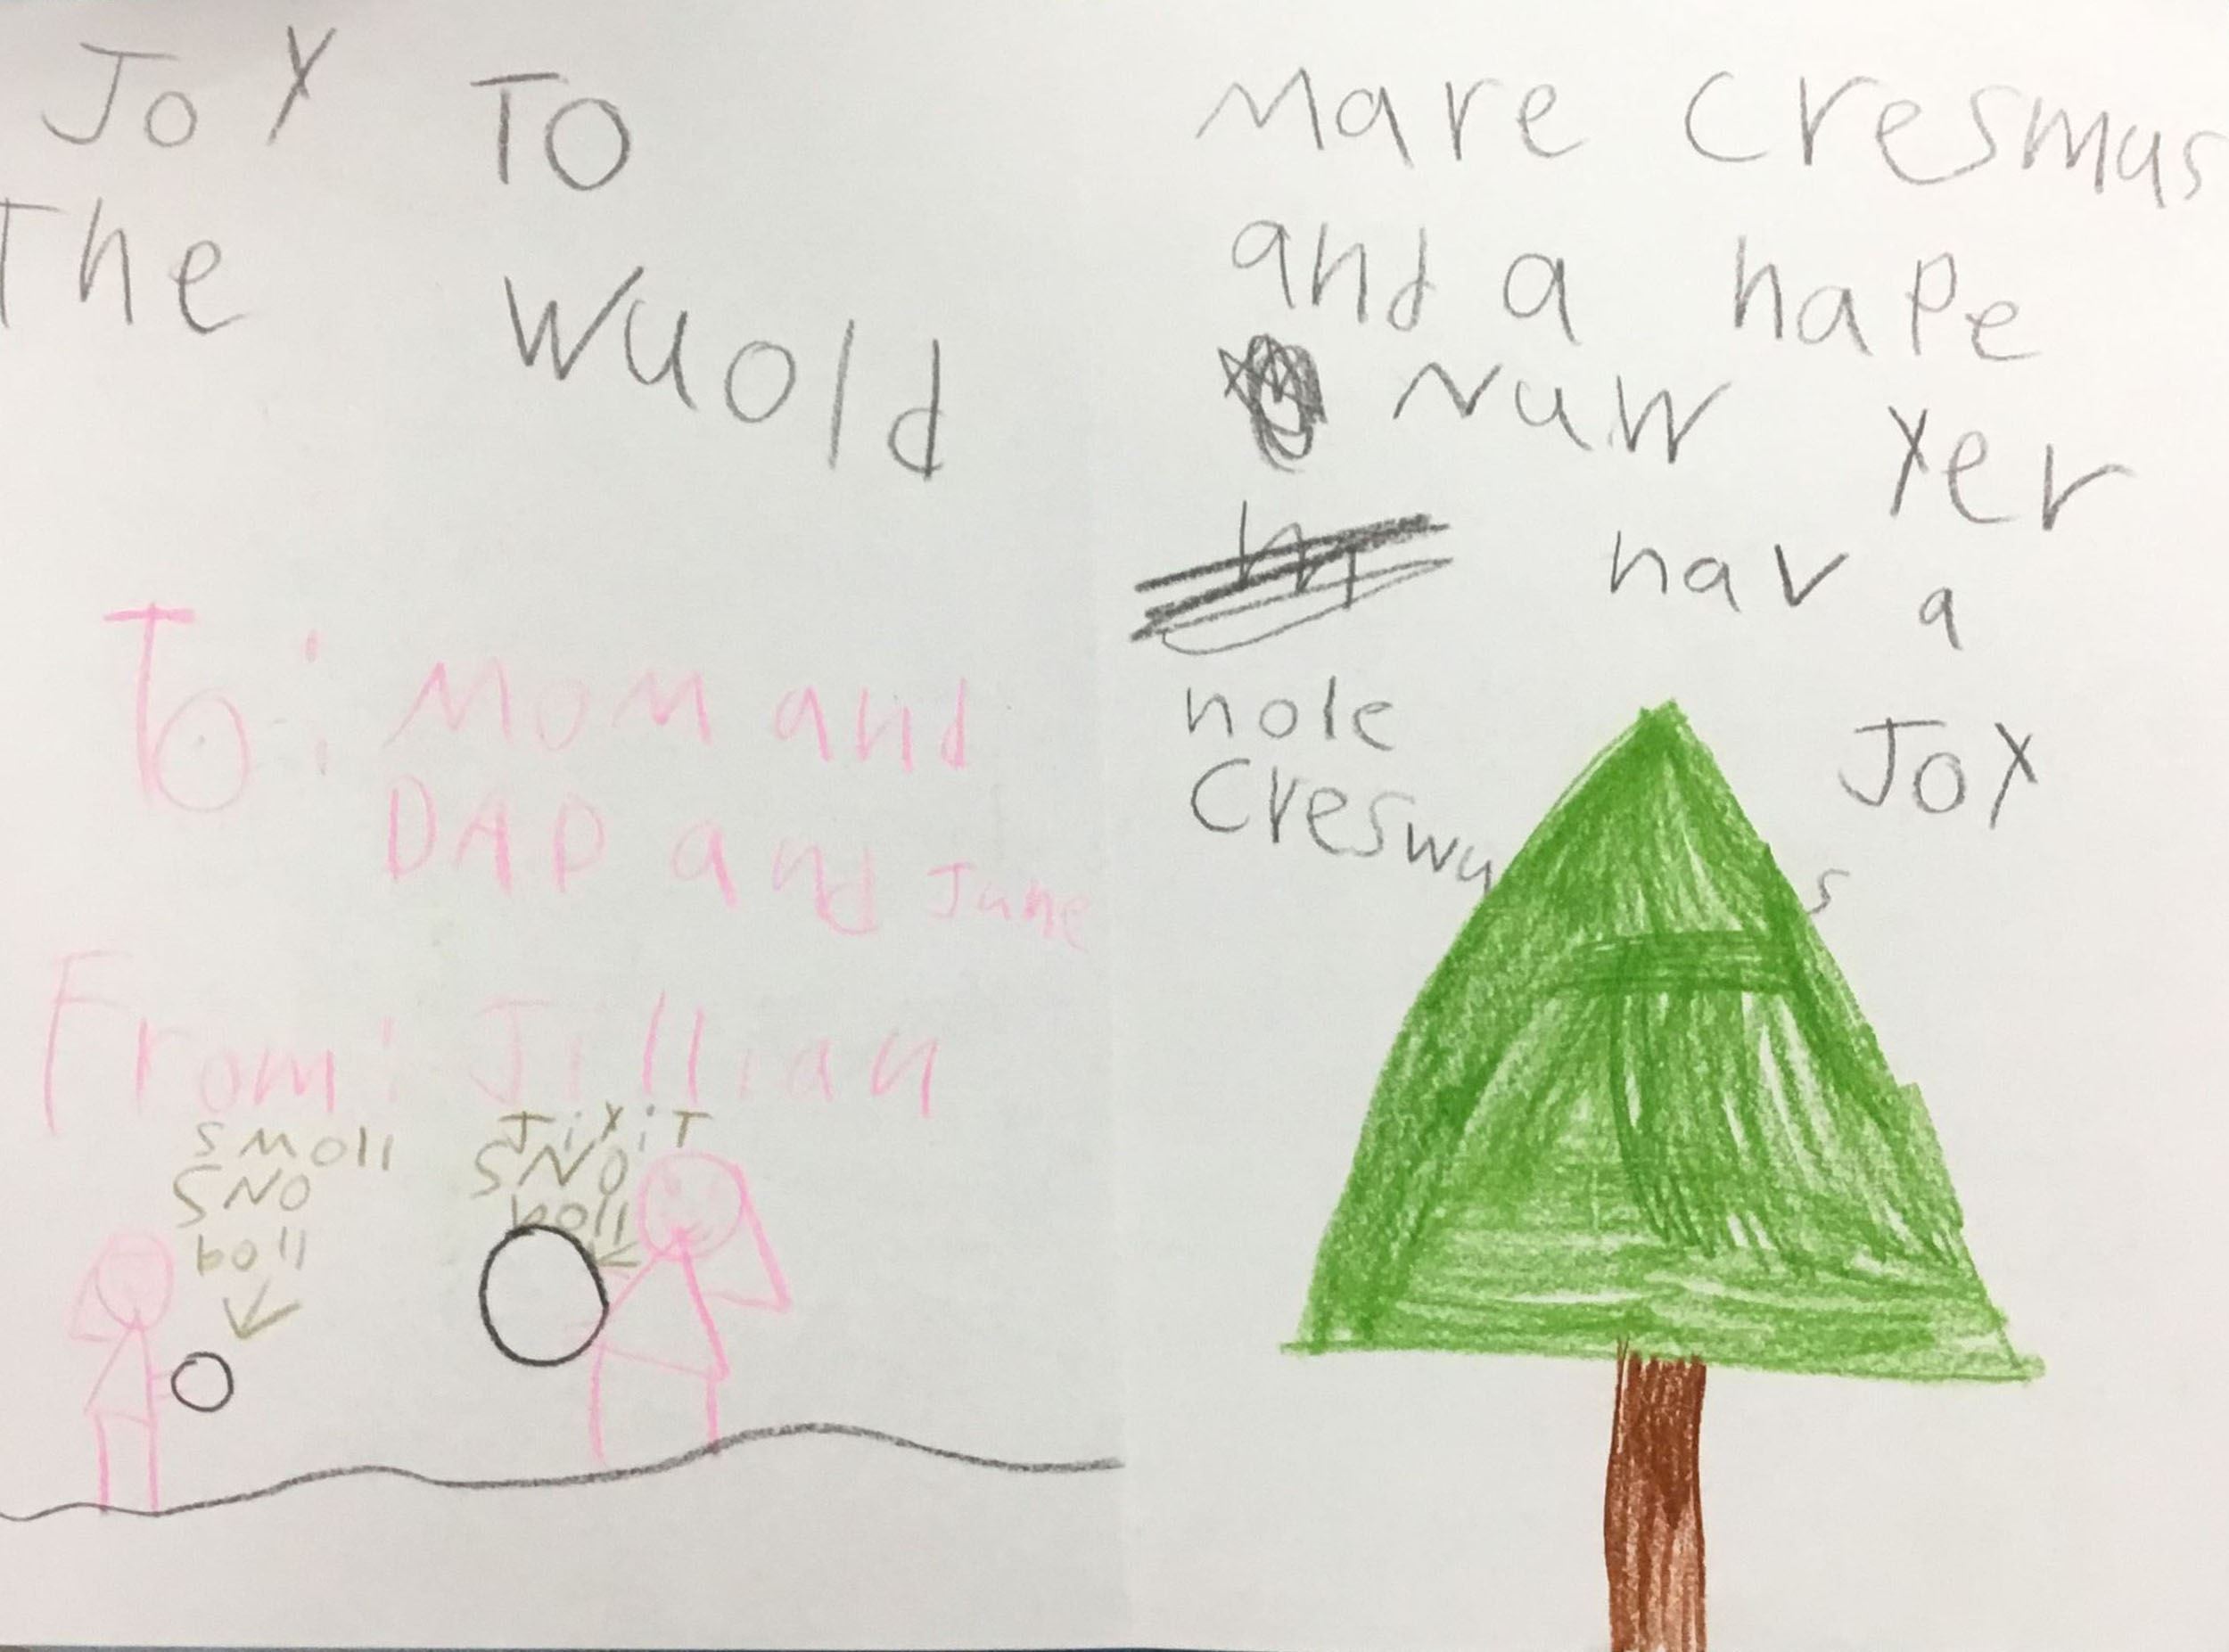 Joy To
The Wuold
To: Mom and
DAD and June
From: Jillian
smoll
SNO
boll
JiYiT
SNO
boll
Mare Cresmus
and a hape
Nuw Yer
hav a
hole Joy
Creswus